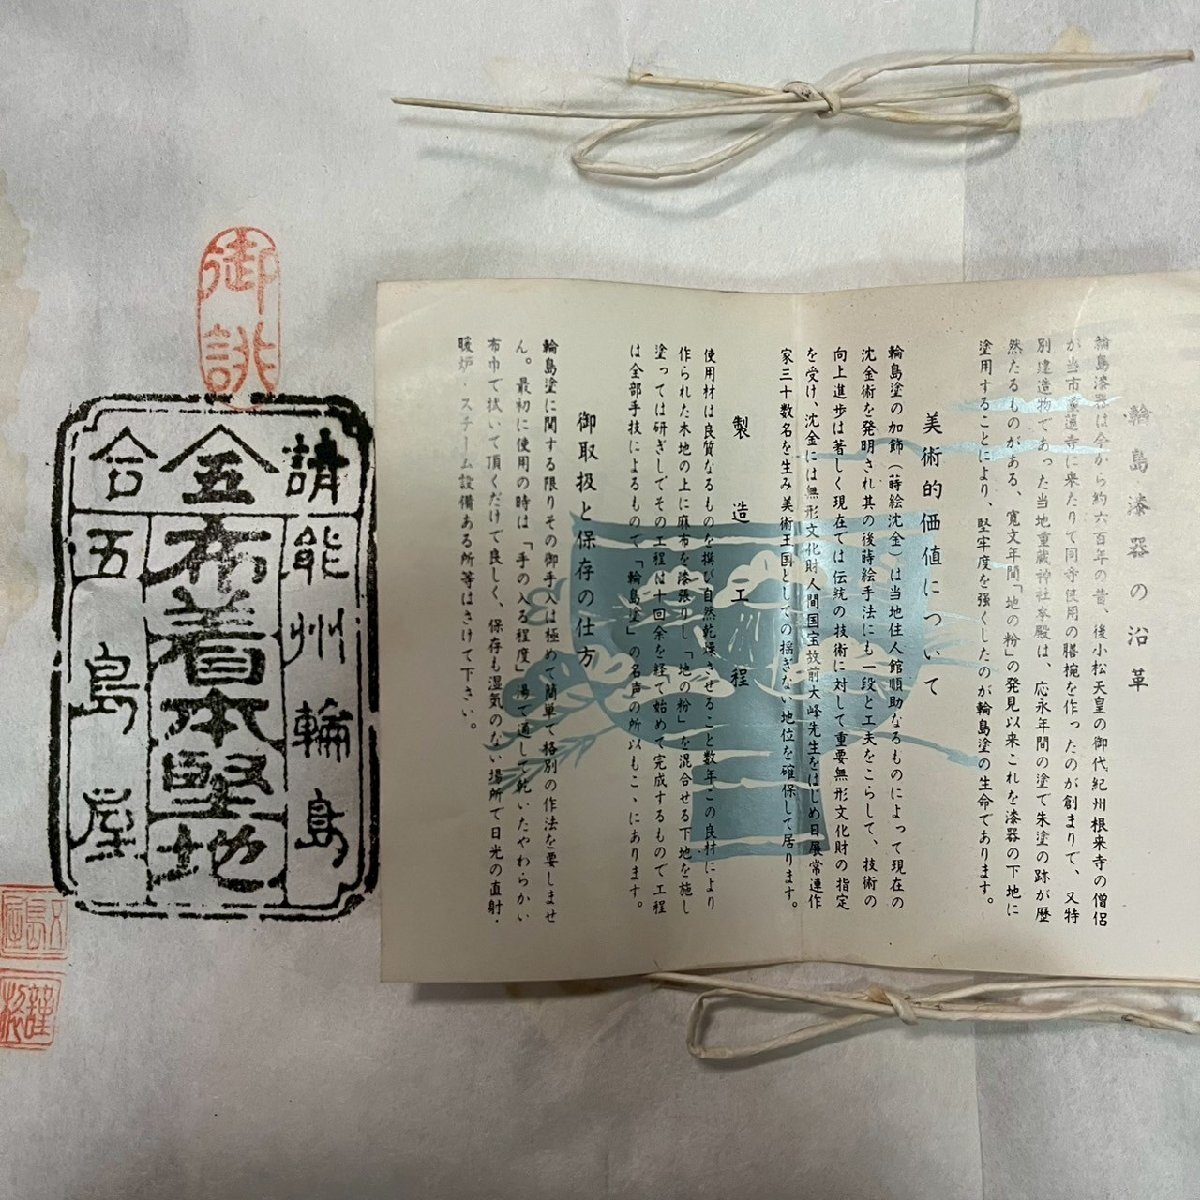 輪島漆器の沿革
輪島漆器は今から約六百年の昔、後小松天皇の御代紀州根来寺の僧侶
が当市重蓮寺に来たりて同寺使用の膳椀を作ったのが創まりで、又特
別建造物であった当地重蔵神社本殿は、応永年間の塗で朱塗の跡が歴
然たるものがある、寛文年間「地の粉」の発見以来これを漆器の下地に
塗用することにより、堅牢度を強くしたのが輪島塗の生命であります。
美術的価値について
輪島塗の加飾（蒔絵沈金）は当地住人館順助なるものによって現在の
沈金術を発明され其の後蒔絵手法にも一段と工夫をこらして、技術の
向上進歩は著しく現在では伝統の技術に対して重要無形文化財の指定
を受け、沈金には無形文化財人間国宝故前大峰先生をはじめ日展常連作
家三十数名を生み美術王国としての揺ぎない地位を確保して居ります。
製造工程
使用材は良質なるものを撰び自然乾燥させること数年この良材により
作られた木地の上に麻布を漆張りし「地の粉」を混合せる下地を施し
塗っては研ぎしてその工程は十回余を経て始めて完成するもので工程
は全部手技によるもので「輪島塗」の名声の所以もこゝにあります。
御取扱と保存の仕方
輪島塗に関する限りその御手入は極めて簡単で格別の作法を要しませ
ん。最初に使用の時は「手の入る程度」湯で通して乾いたやわらかい
布巾で拭いて頂くだけで良しく、保存も湿気のない場所で日光の直射・
暖炉・スチーム設備ある所等はさけて下さい。
御誂
請合
能州輪島
五
布着本堅地
五島屋
五島屋
謹製